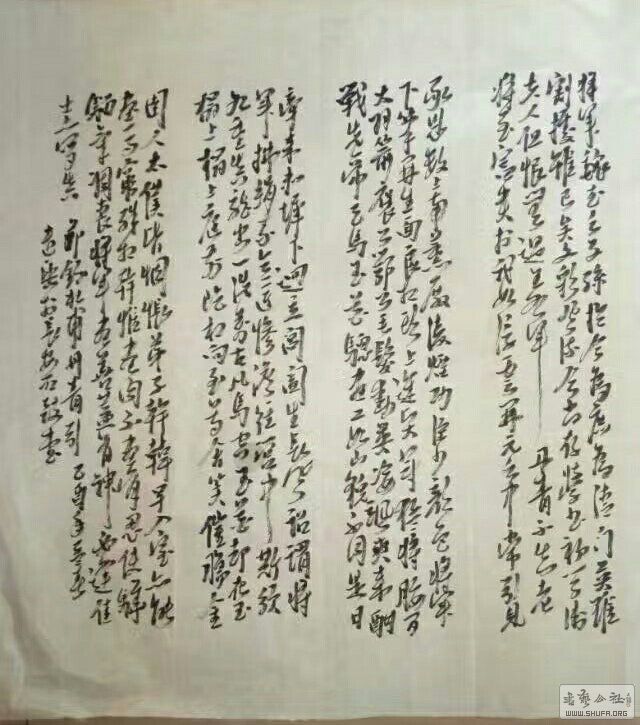 将军魏武之子孙于今为庶为清门英雄
割据虽已矣文彩风流今尚存学书初学卫
夫人但恨无过王右军 丹青不知老
将至富贵于我如浮云开元之中常引见
承恩数上南熏殿凌烟功臣少颜色将军
下笔开生面良相头上进贤冠猛将腰间
大羽箭褒公鄂公毛发动英姿飒爽来酣
战先帝天马玉花骢画工如山貌不同是日
牵来赤墀下迥立阊阖生长风诏谓将
军拂绢素意匠惨澹经营中斯须
九重真龙出一洗万古凡马空玉花却在御
榻上榻上庭前屹相向至尊含笑催赐金
圉人太仆皆惆怅弟子韓幹早入室亦能
画马穷殊相幹惟画肉不画骨忍使骅
骝气凋丧将军画善盖有神必逢佳
士亦写真 节录杜甫丹青引 乙酉年
书艺公社
WWW.SHUFA.ORG